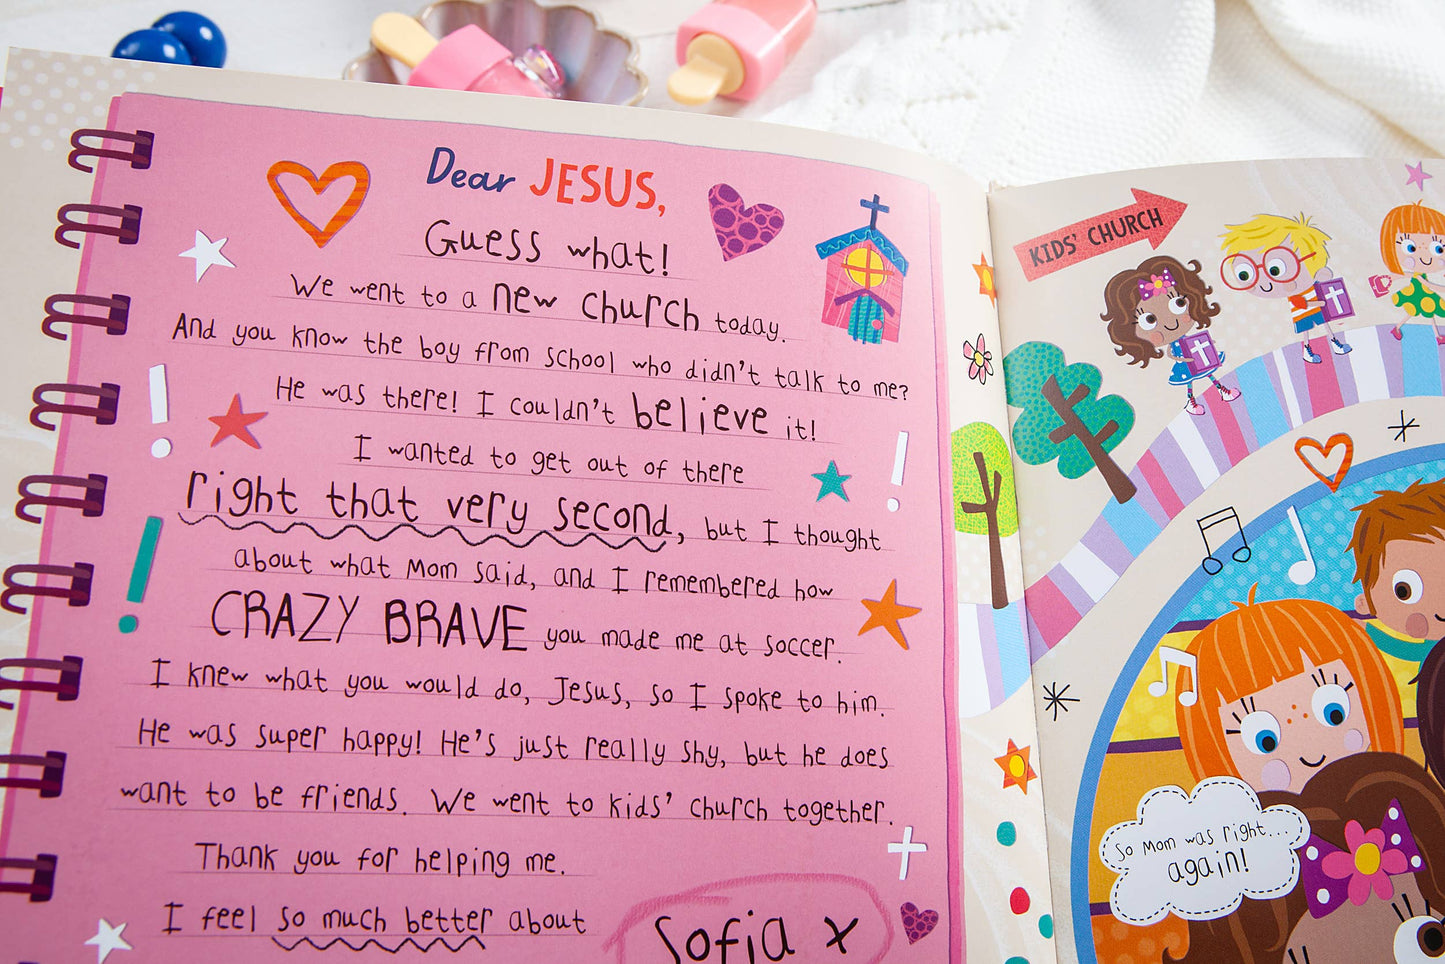 Dear JESUS,
Guess what!
We went to a new church today.
And you know the boy from school who didn't talk to me?
He was there! I couldn't believe it!
I wanted to get out of there
right that very second, but I thought
about what Mom said, and I remembered how
CRAZY BRAVE you made me at soccer.
I knew what you would do, Jesus, so I spoke to him.
He was super happy! He's just really shy, but he does
want to be friends. We went to kids' church together.
Thank you for helping me.
I feel so much better about
Sofia x
KIDS' CHURCH
So Mom was right...
again!